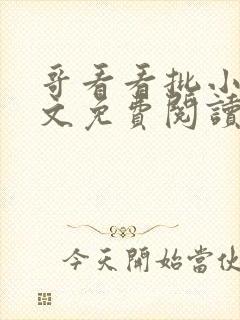 哥看看批小
文免費閱讀
今天開始當伙